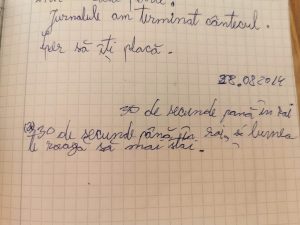 Jurnalule am terminat cântecul.
Sper să îți placă.
28.08.2014
30 de secunde până în rai
30 de secunde până în rai, și lumea
te roagă să mai stai.